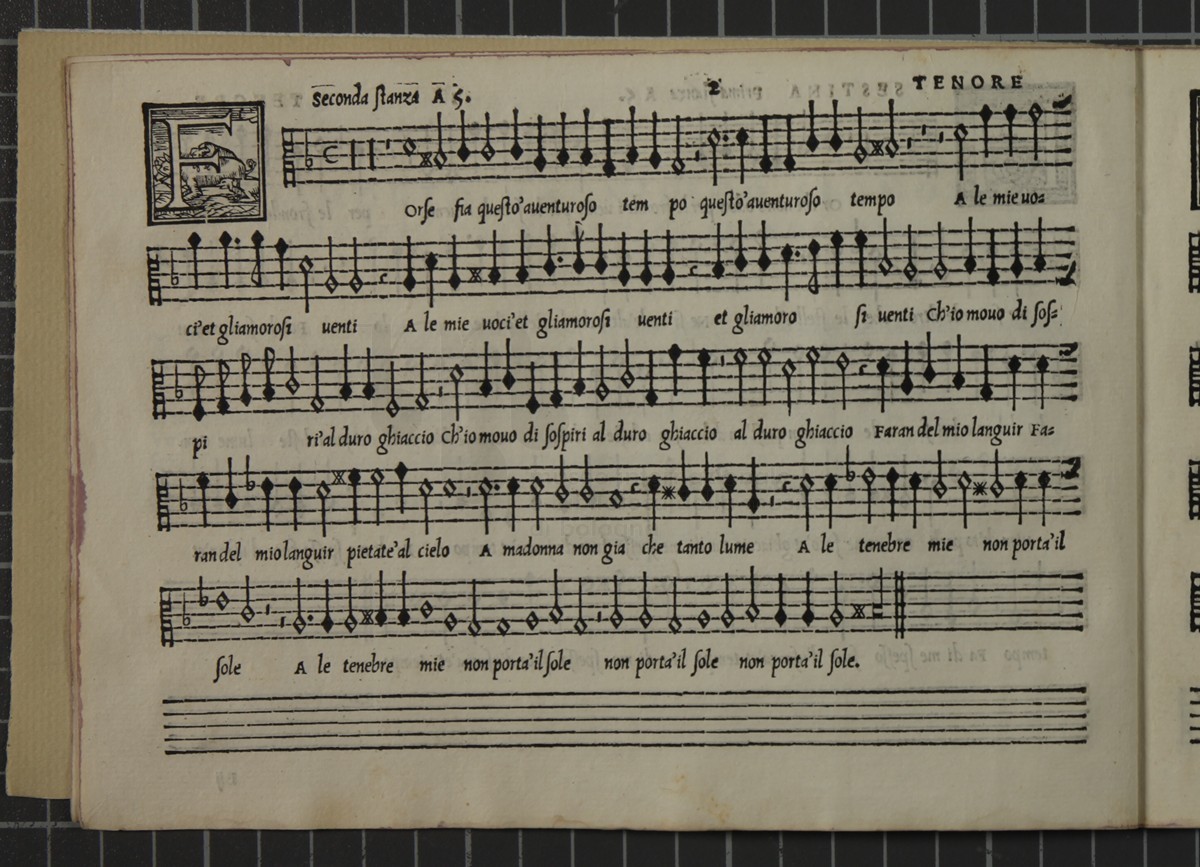 Seconda stanza A 5. 2 TENORE
FOrse fia questo'auenturoso tem po questo'auenturoso tempo A le mie uo=
ci'et gliamorosi uenti A le mie uoci'et gliamorosi uenti et gliamoro si uenti Ch'io mouo di sos=
pi ri'al duro ghiaccio Ch'io mouo di sospiri al duro ghiaccio al duro ghiaccio Faran del mio languir Fa=
ran del mio languir pietate'al cielo A madonna non gia che tanto lume A le tenebre mie non porta'il
sole A le tenebre mie non porta'il sole non porta'il sole non porta'il sole.